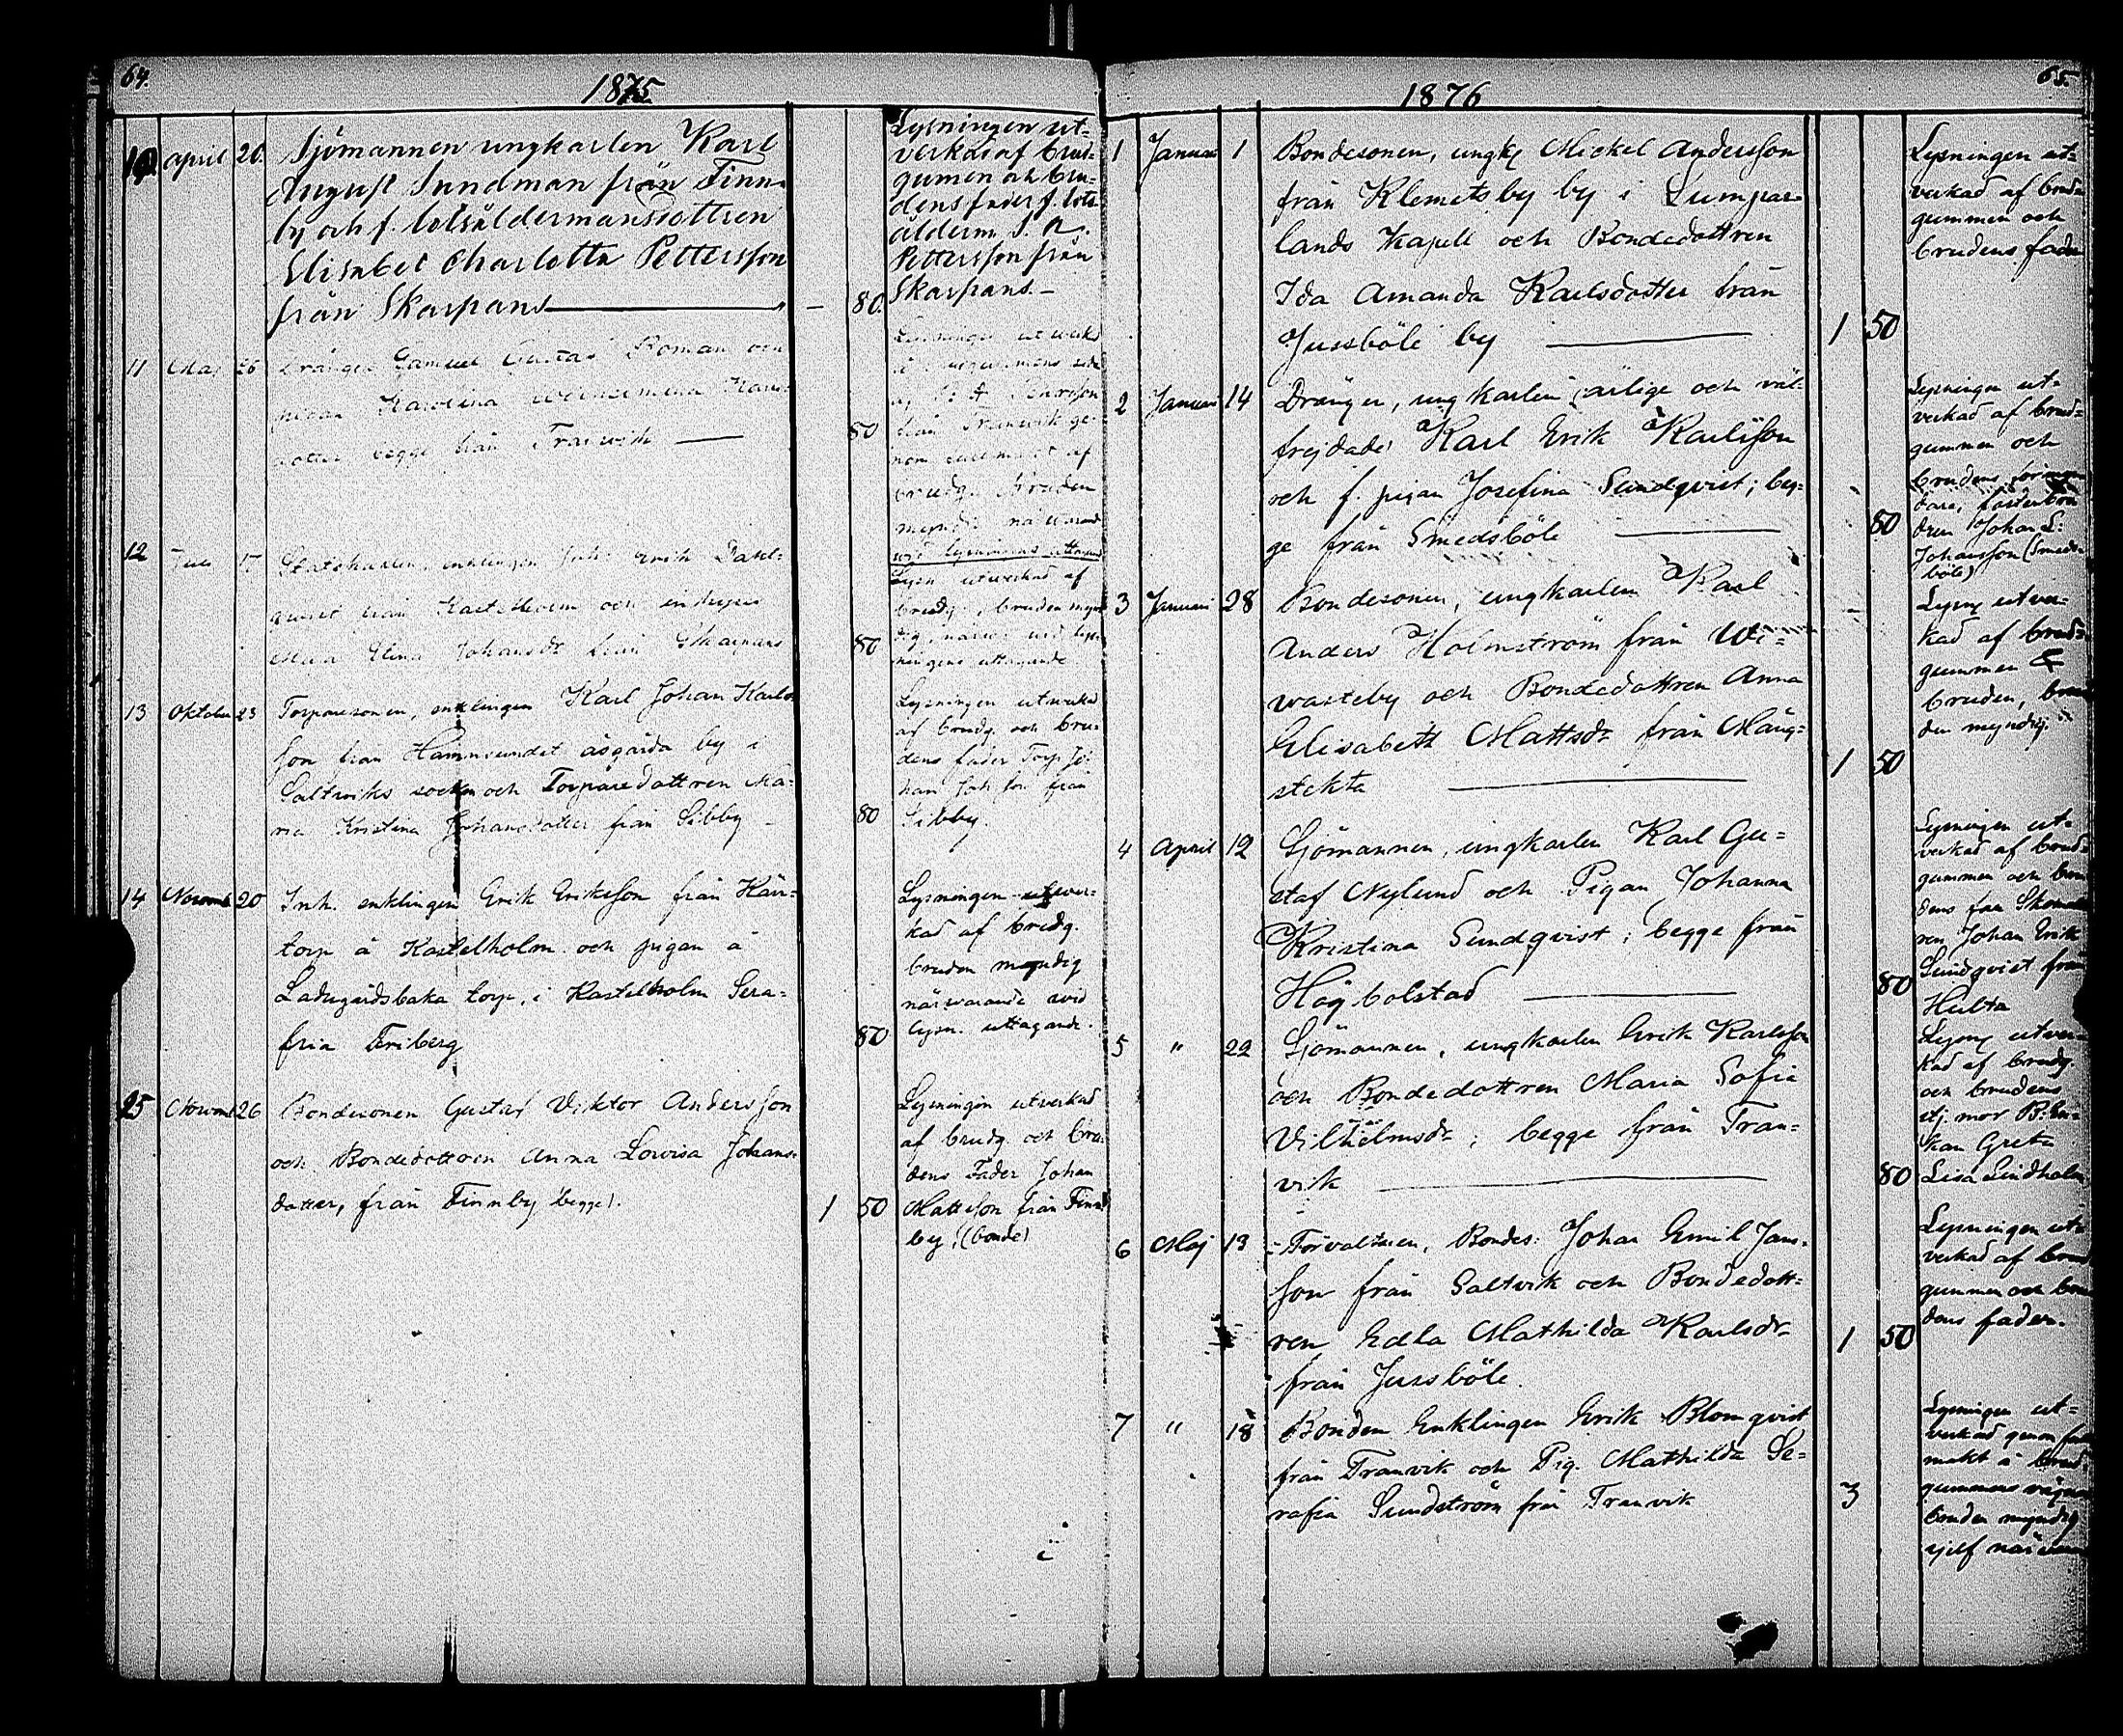 64.
1875
10 april 20. Sjömannen ungkarlen Karl
August Sundman från Finn-
by och f. lotsåldermansdottren
Elisabet Charlotta Pettersson
från Skarpans — 80.
Lysningen ut-
verkad af brud-
gumen och bru-
dens fader f. lots-
ålderm. J. A.
Pettersson från
Skarpans. –
11 Maj 26 Drängen Samuel Gustaf Roman och
pigan Karolina Karls-
dotter begge från Tranvik — 80
Lysningen utverkad
från Tranvik ge-
nom af
brudg. Bruden
myndig närvarande
vid lysningens uttagande
12 17 Statskarlen, enklingen Joh. Erik Dahl-
quist från Kastelholm och enkepig
Elina Johansdr från Skarpans 80
Lysn utverkad af
brudg., bruden myn-
dig, närv. vid lys-
ningens uttagande
13 Oktober 23 Torparesonen, enklingen Karl Johan Karls-
son från Hamnsundet åsgårda by i
Saltviks socken och Torparedottren Ma-
ria Kristina Johansdotter från Sibby – 80
Lysningen utverkad
af brudg. och bru-
dens fader Torp Jo-
han Joh.son från
Sibby.
14 Novemb 20 Inh. enklingen Erik Eriksson från Kärr-
torp å Kastelholm och pigan å
Ladugårdsbaka torp, i Kastelholm Sera-
fia Friberg 80
Lysningen utver-
kad af brudg.
bruden myndig
närwarande wid
lysn. uttagande.
25 Novemb 26 Bondesonen Gustaf Viktor Andersson
och Bondedottren Anna Lovisa Johans-
dotter, från Finnby (begge). 1 50
Lysningen utverkad
af brudg. och bru-
dens Fader Johan
Mattsson från Finn-
by, (bonde)
65.
1876
1 Januari 1 Bondesonen, ungk. Mickel Andersson
från Klemetsby by i Lumpar-
lands Kapell och Bondedottren
Ida Amanda Karlsdotter från
Jussböle by — 1 50
Lysningen ut-
verkad af brud-
gummen och
brudens fader
2 Januari 14 Drängen, ungkarlen, ärlige och väl-
frejdade Karl Erik Karlsson
och f. pigan Josefina Sundqvist; beg-
ge från Smedsböle — 80
Lysningen ut-
verkad af brud-
gummen och
brudens
fosterbro-
dren Johan E:
Johansson (Smeds-
böle)
3 Januari 28 Bondesonen, ungkarlen Karl
Anders Holmström från Wi-
wasteby och Bondedottren Anna
Elisabeth Mattsdr från Mång-
stekta — 1 50
Lysng utver-
kad af brud-
gummen &
bruden, bru-
den myndig.
4 April 12 Sjömannen, ungkarlen Karl Gu-
staf Nylund och Pigan Johanna
Kristina Sundqvist; begge från
Högbolstad — 80
Lysningen ut-
verkad af brud-
gummen och bru-
dens far
Johan Erik
Sundqvist från
Hulta
5 " 22 Sjömannen, ungkarlen Erik Karlsson
och Bondedottren Maria Sofia
Vilhelmsdr; begge från Tran-
vik — 80
Lysng utver-
kad af brudg.
och brudens
stj. mor B. En-
kan Greta
Lisa Lindholm
6 Maj 13 Förvaltaren, Bondes: Johan Emil Jans-
son från Saltvik och Bondedott-
ren Edla Mathilda Karlsdr
från Jussböle. 1 50
Lysningen ut-
verkad af brud-
gummen och bru-
dens fader.
7 " 18 Bonden Enklingen Erik Blomqvist
från Tranvik och Pig. Mathilda Se-
rafia Sundström från Tranvik 3
Lysningen ut-
verkad genom full-
makt å brud-
gummens vägnar
bruden myndig
sjelf närvarande